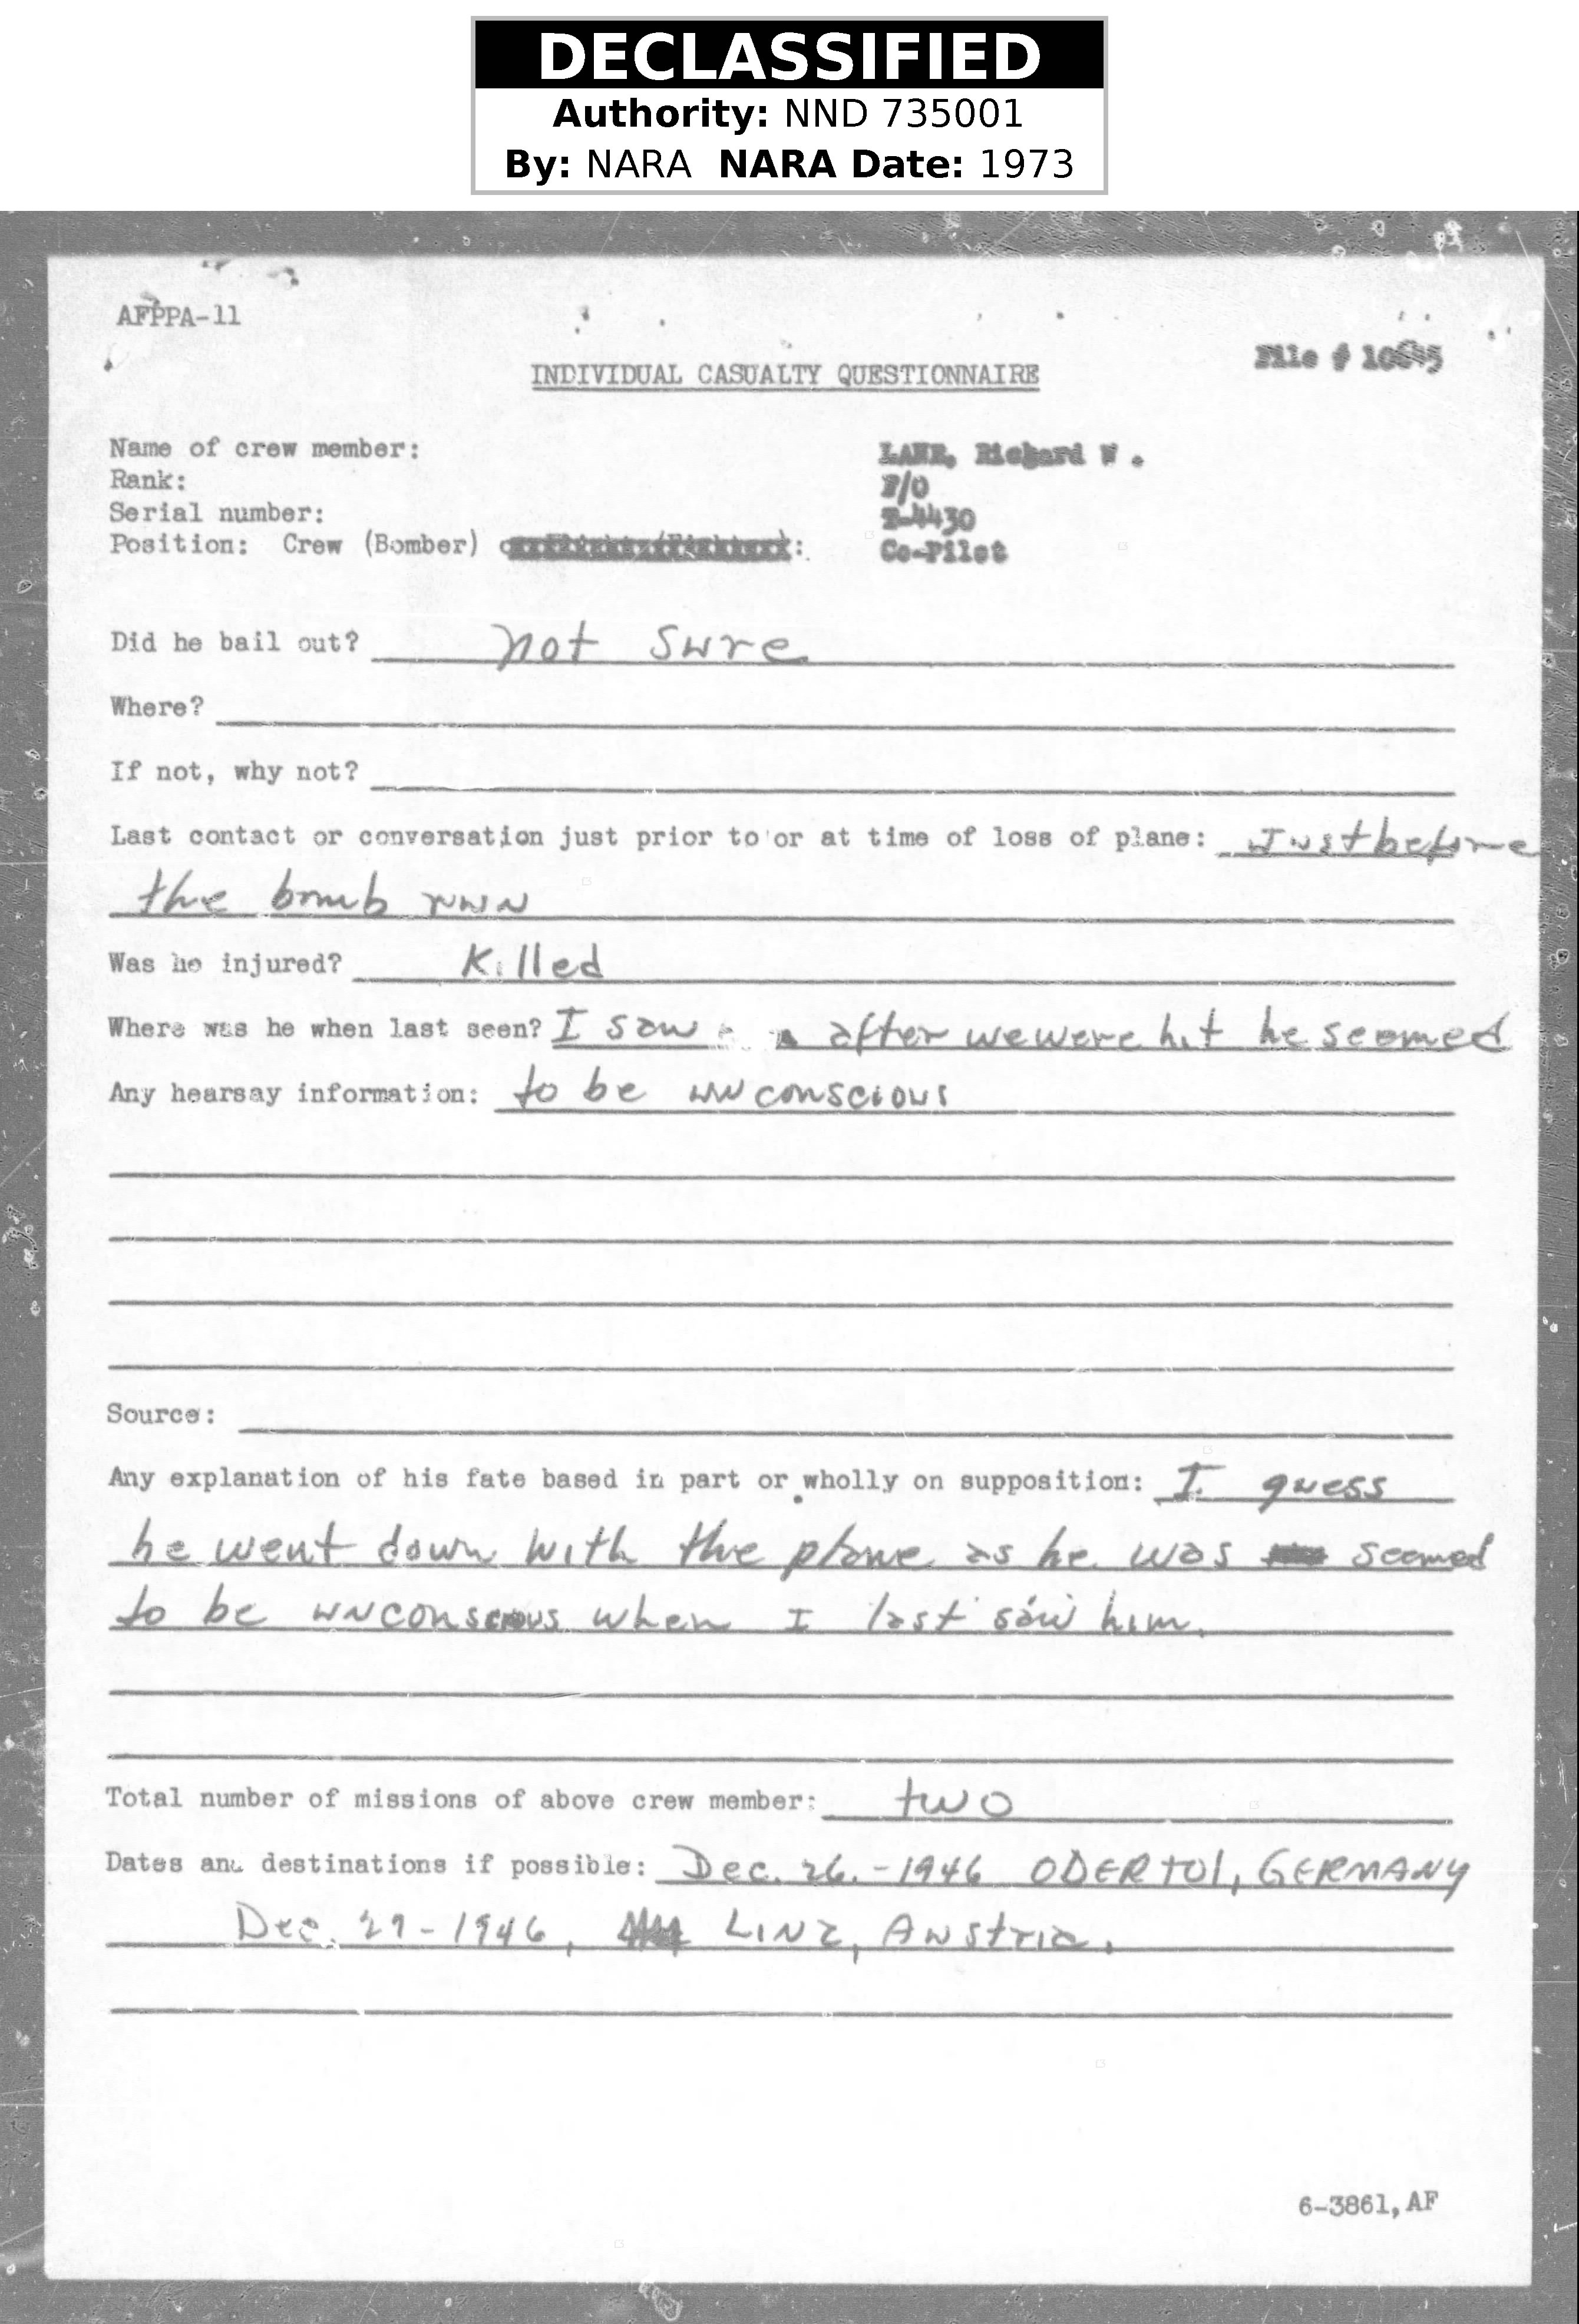 DECLASSIFIED
Authority: NND 735001
By: NARA NARA Date: 1973
AFPPA-11
File #
INDIVIDUAL CASUALTY QUESTIONNAIRE
Name of crew member: LANE, Richard W.
Rank: F/O
Serial number: T-4430
Position: Crew (Bomber) : Co-Pilot
Did he bail out? not sure
Where?
If not, why not?
Last contact or conversation just prior to or at time of loss of plane: Just before
the bomb run
Was he injured? Killed
Where was he when last seen? I saw after we were hit he seemed
Any hearsay information: to be unconscious
Source:
Any explanation of his fate based in part or wholly on supposition: I guess
he went down with the plane as he was seemed
to be unconscious when I last saw him.
Total number of missions of above crew member: two
Dates and destinations if possible: Dec. 26.-1946 ODERTOL, GERMANY
Dec. 27-1946, LINZ, Austria.
6-3861, AF